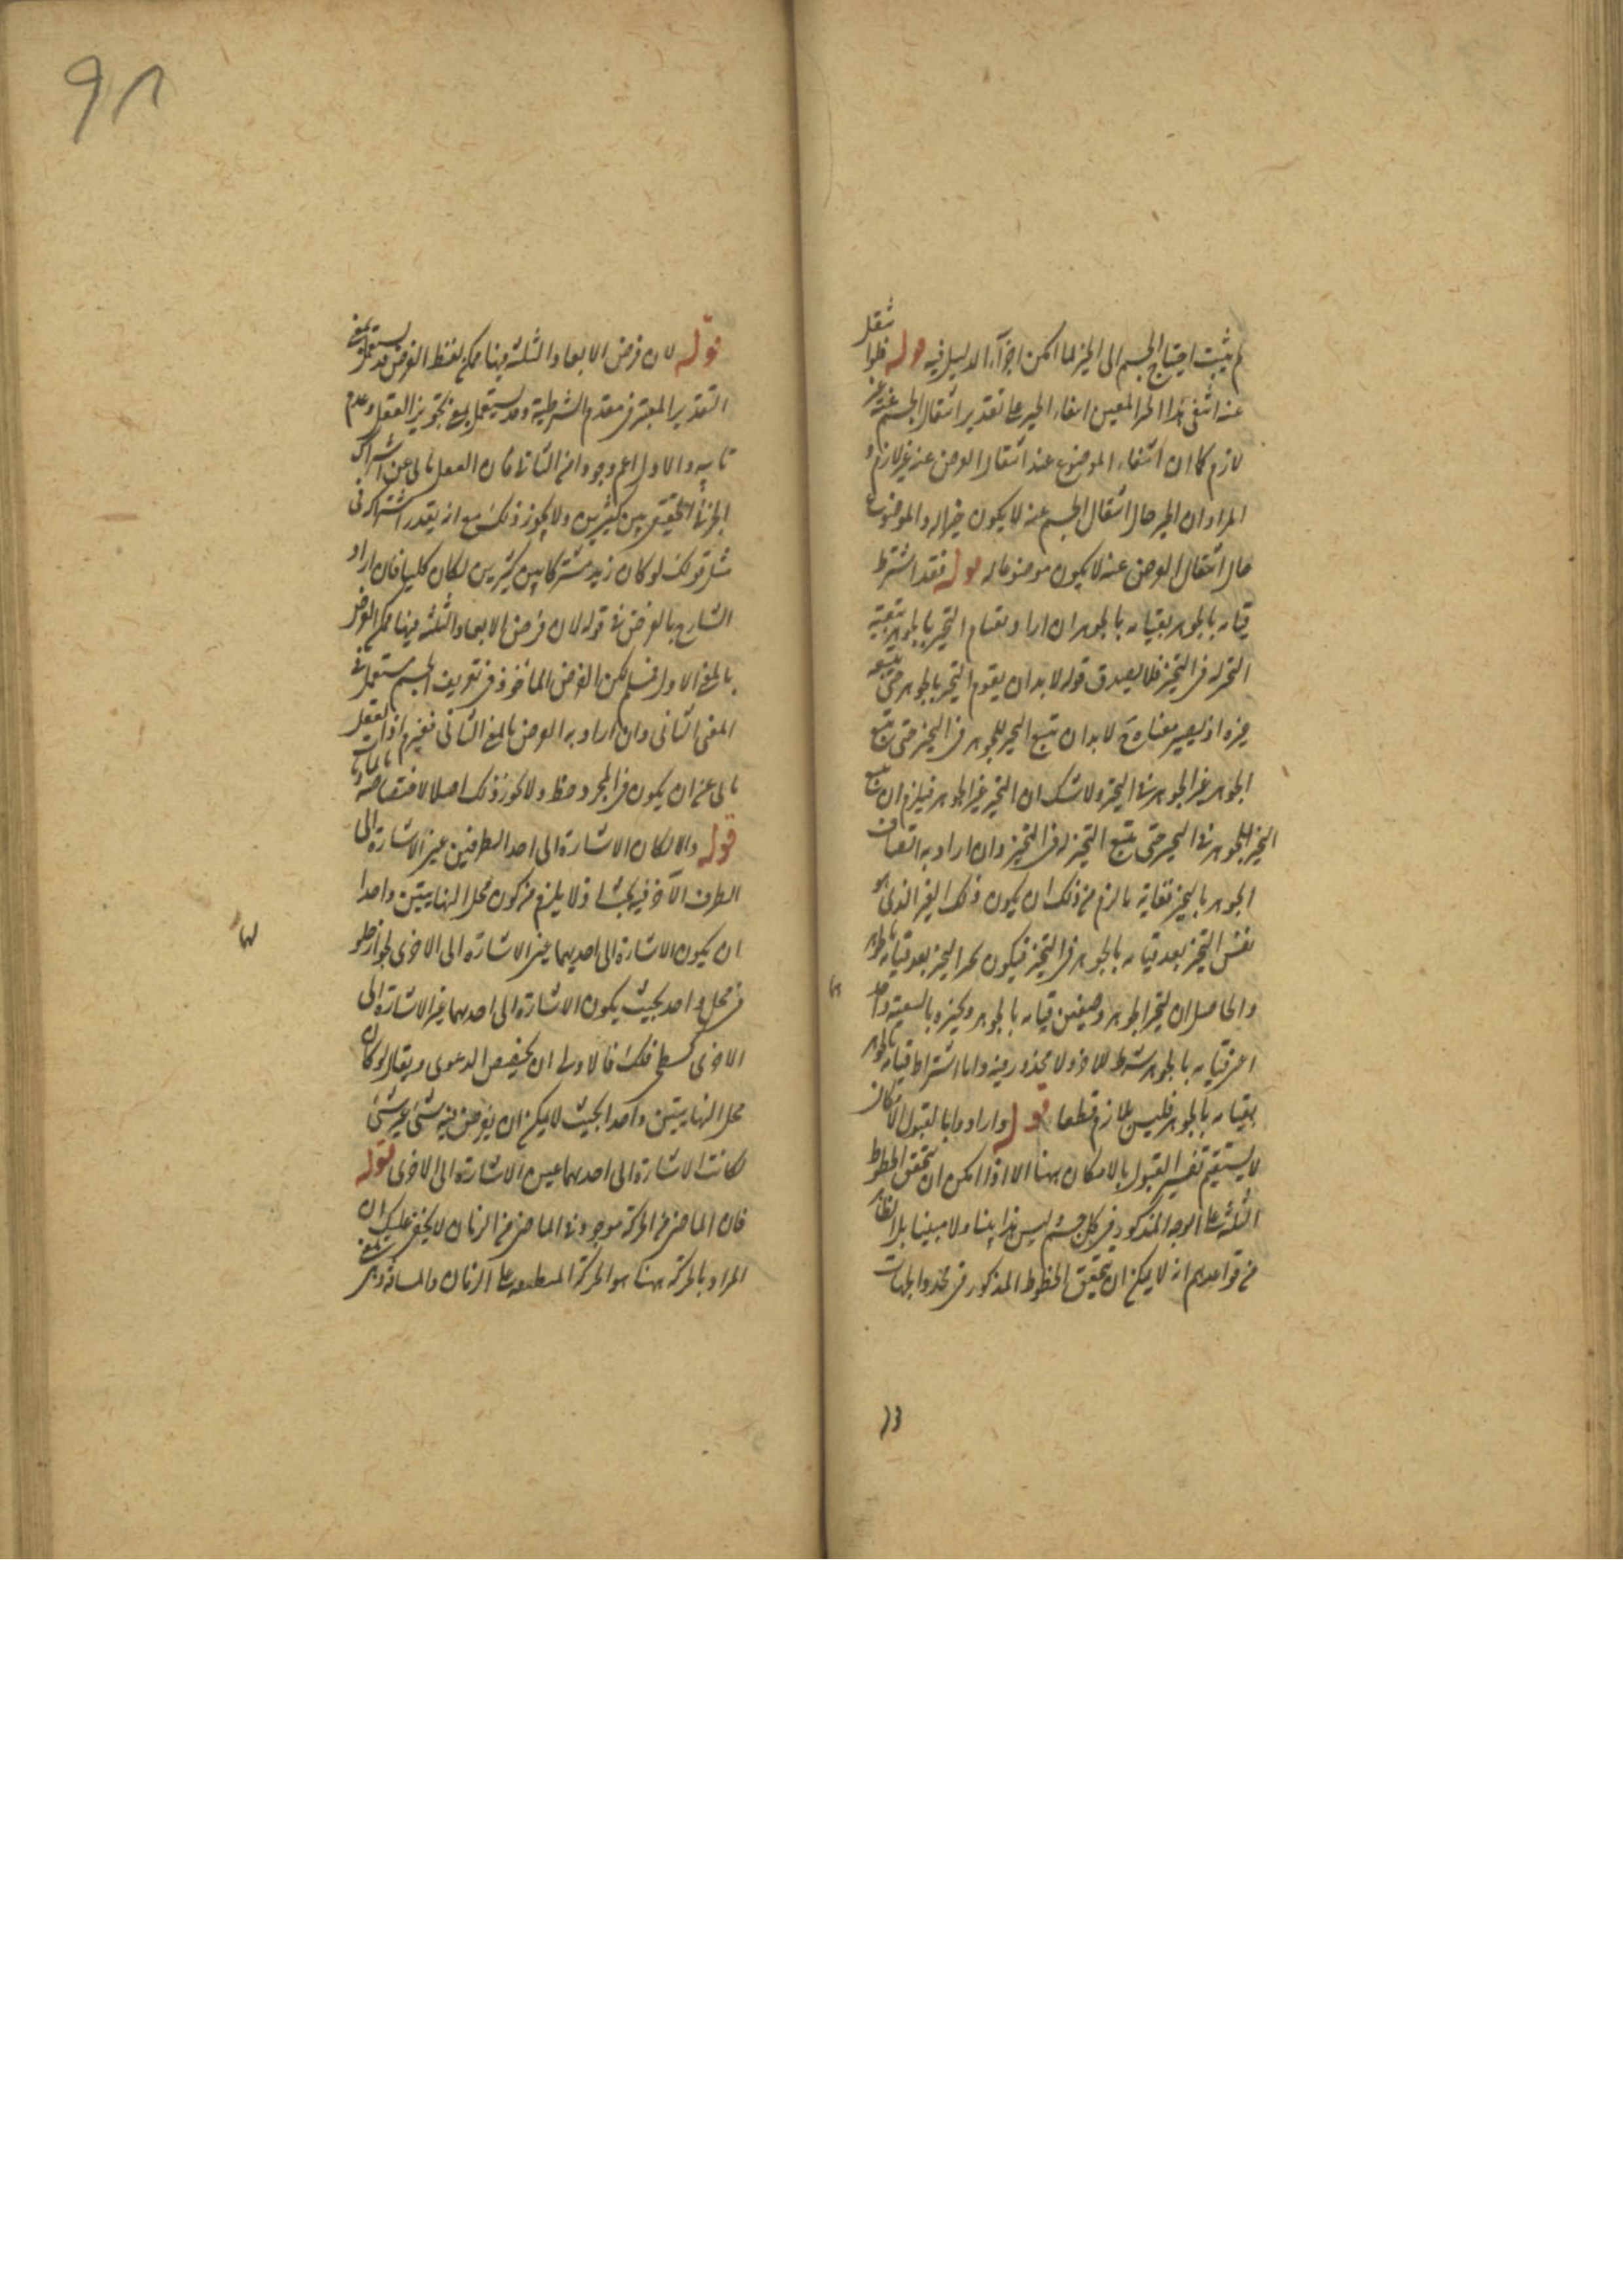 لم يثبت احتياج الجسم الى الحيز لما امكن اجراء الدليل فيه قوله فلو انتقل
عنه انتفى هذا الحيز المعين انتفاء الحيز على تقدير انتقال الجسم عنه غير
لازم كما ان انتفاء الموضوع عند انتقال العرض عنه غير لازم و
المراد ان الحيز حال انتقال الجسم عنه لا يكون حيزا له والموضوع
حال انتقال العرض عنه لا يكون موضوعا له قوله فقد اشترط
قيامه بالجوهر بقيامه بالجوهر ان اراد بقيام التحيز بالجوهر تبعيته
التحيز له في التحيز فلا يصدق قوله لا بد ان يقوم التحيز بالجوهر حتى يتبعه
غيره اذ يصير معناه ح لا بد ان يتبع التحيز للجوهر في التحيز حتى يتبع
الجوهر غير الجوهر في التحيز ولا شك ان التحيز غير الجوهر فيلزم ان يتبع
التحيز للجوهر في التحيز حتى يتبع التحيز له في التحيز وان اراد به اتصاف
الجوهر بالتحيز فغاية ما لزم من ذلك ان يكون ذلك الغير الذي هو
نفس التحيز بعد قيامه بالجوهر في التحيز فيكون تحيز التحيز بعد قيامه بالجوهر
والحاصل ان لتحيز الجوهر وصفين قيامه بالجوهر وتحيزه بالتبعية واحد
اعني قيامه بالجوهر شرط للاخر ولا محذور فيه واما اشتراط قيامه بالجوهر
بقيامه بالجوهر فليس بلازم قطعا قوله وارادوا بالقبول الامكان
لا يستقيم تفسير القبول بالامكان ههنا الا اذا امكن ان تتحقق الخطوط
الثلثة على الوجه المذكور في كل جسم ليس هذا بينا ولا مبينا بل الظاهر
من قواعدهم انه لا يمكن ان تتحقق الخطوط المذكور في محدد الجهات
قوله لان فرض الابعاد الثلثة فيها ممكن لفظ الفرض قد يستعمل بمعنى
التقدير المعتبر في مقدم الشرطية وقد يستعمل بمعنى تجويز العقل وعدم
تابيه والاول اعم وجودا من الثاني فان العقل تابى عن اشتراك
الجزئي الحقيقي بين كثيرين ولا يجوز ذلك مع انه يقدر اشتراكه في
مثل قولك لو كان زيد مشتركا بين كثيرين لكان كليا فان اراد
الشارح بالفرض في قوله لان فرض الابعاد الثلثة فيها ممكن الفرض
بالمعنى الاول فمسلم لكن الفرض الماخوذ في تعريف الجسم مستعمل في
المعنى الثاني وان اراد به الفرض بالمعنى الثاني فغير م اذ العقل
تابى عن ان يكون في المجرد خط ولا يجوز ذلك اصلا لاقتضائه
قوله والا لكان الاشارة الى احد الطرفين عين الاشارة الى
الطرف الآخر فيه بحث اذ لا يلزم من كون محل النهايتين واحدا
ان يكون الاشارة الى احديهما عين الاشارة الى الاخرى لجواز
في محل واحد بحيث يكون الاشارة الى احديهما غير الاشارة الى
الاخرى كسطح فلك فالاولى ان يخصص الدعوى ويقال لو كان
محل النهايتين واحدا بحيث لا يمكن ان يفرض فيه شيء غير شيء
لكانت الاشارة الى احديهما عين الاشارة الى الاخرى قوله
فان الماضي من الحركة موجود في الماضي من الزمان لا يخفى عليك ان
المراد بالحركة ههنا هو الحركة المنطبقة على الزمان والمسافة وهي بمعنى
لها